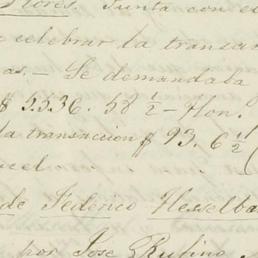 Flores. Junta con el
celebrar la transac
as.— Se demandaba
$ 5536. 58 ½ – Hon.
la transaccion $ 93. 6 ½
de Federico Hesselba
por José Rufino